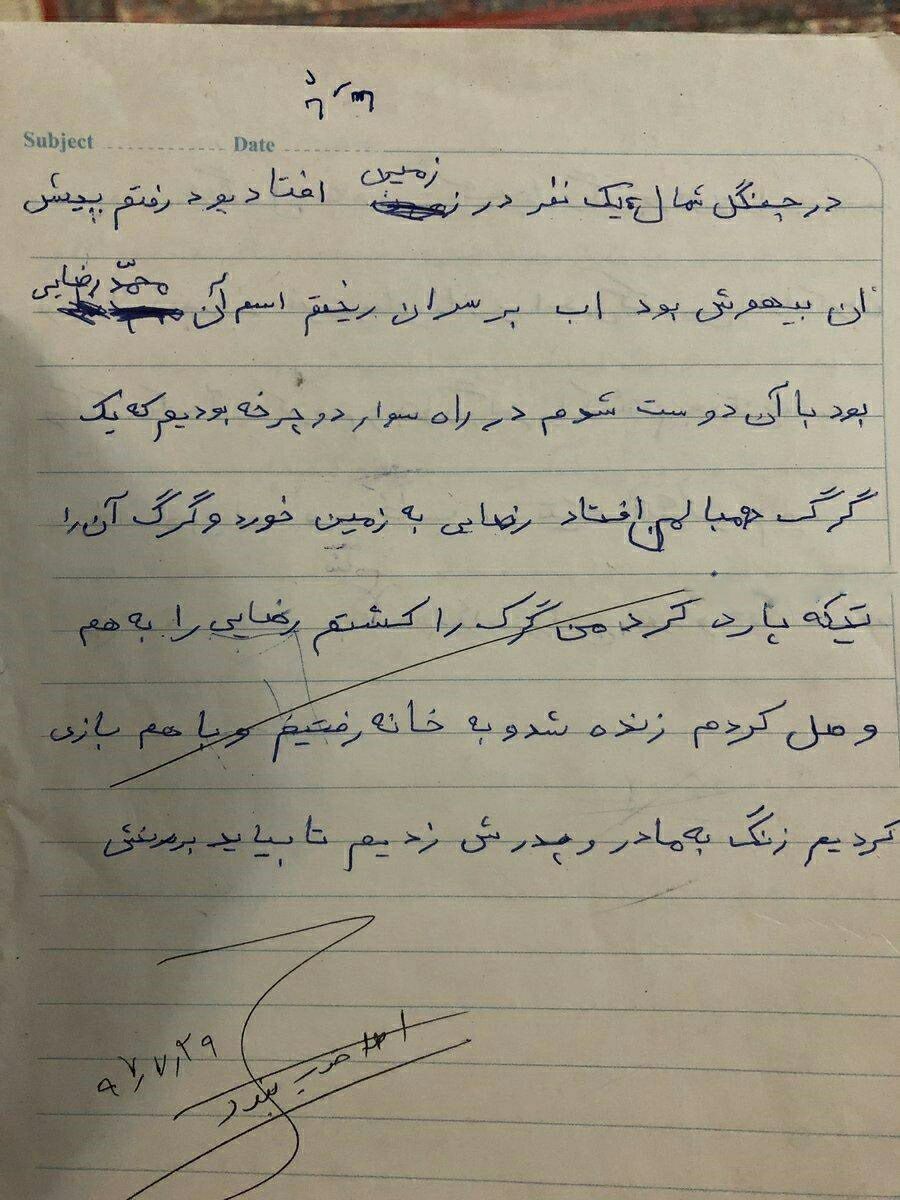 Subject Date
در جنگل شمال یک نفر در زمین افتاد بود رفتم پیش
ان بیهوش بود اب بر سر ان ریختم اسم آن محمّد رضایی
بود با آن دوست شدم در راه سوار دو چرخه بودیم که یک
گرگ افتاد رضایی به زمین خورد و گرگ آن را
تیکه پاره کرد من گرگ را کشتم رضایی را به هم
وصل کردم زنده شد و به خانه رفتیم و با هم بازی
کردیم زنگ به مادر و پدرش زدیم تا بیاید
۹۷٫۷٫۲۹